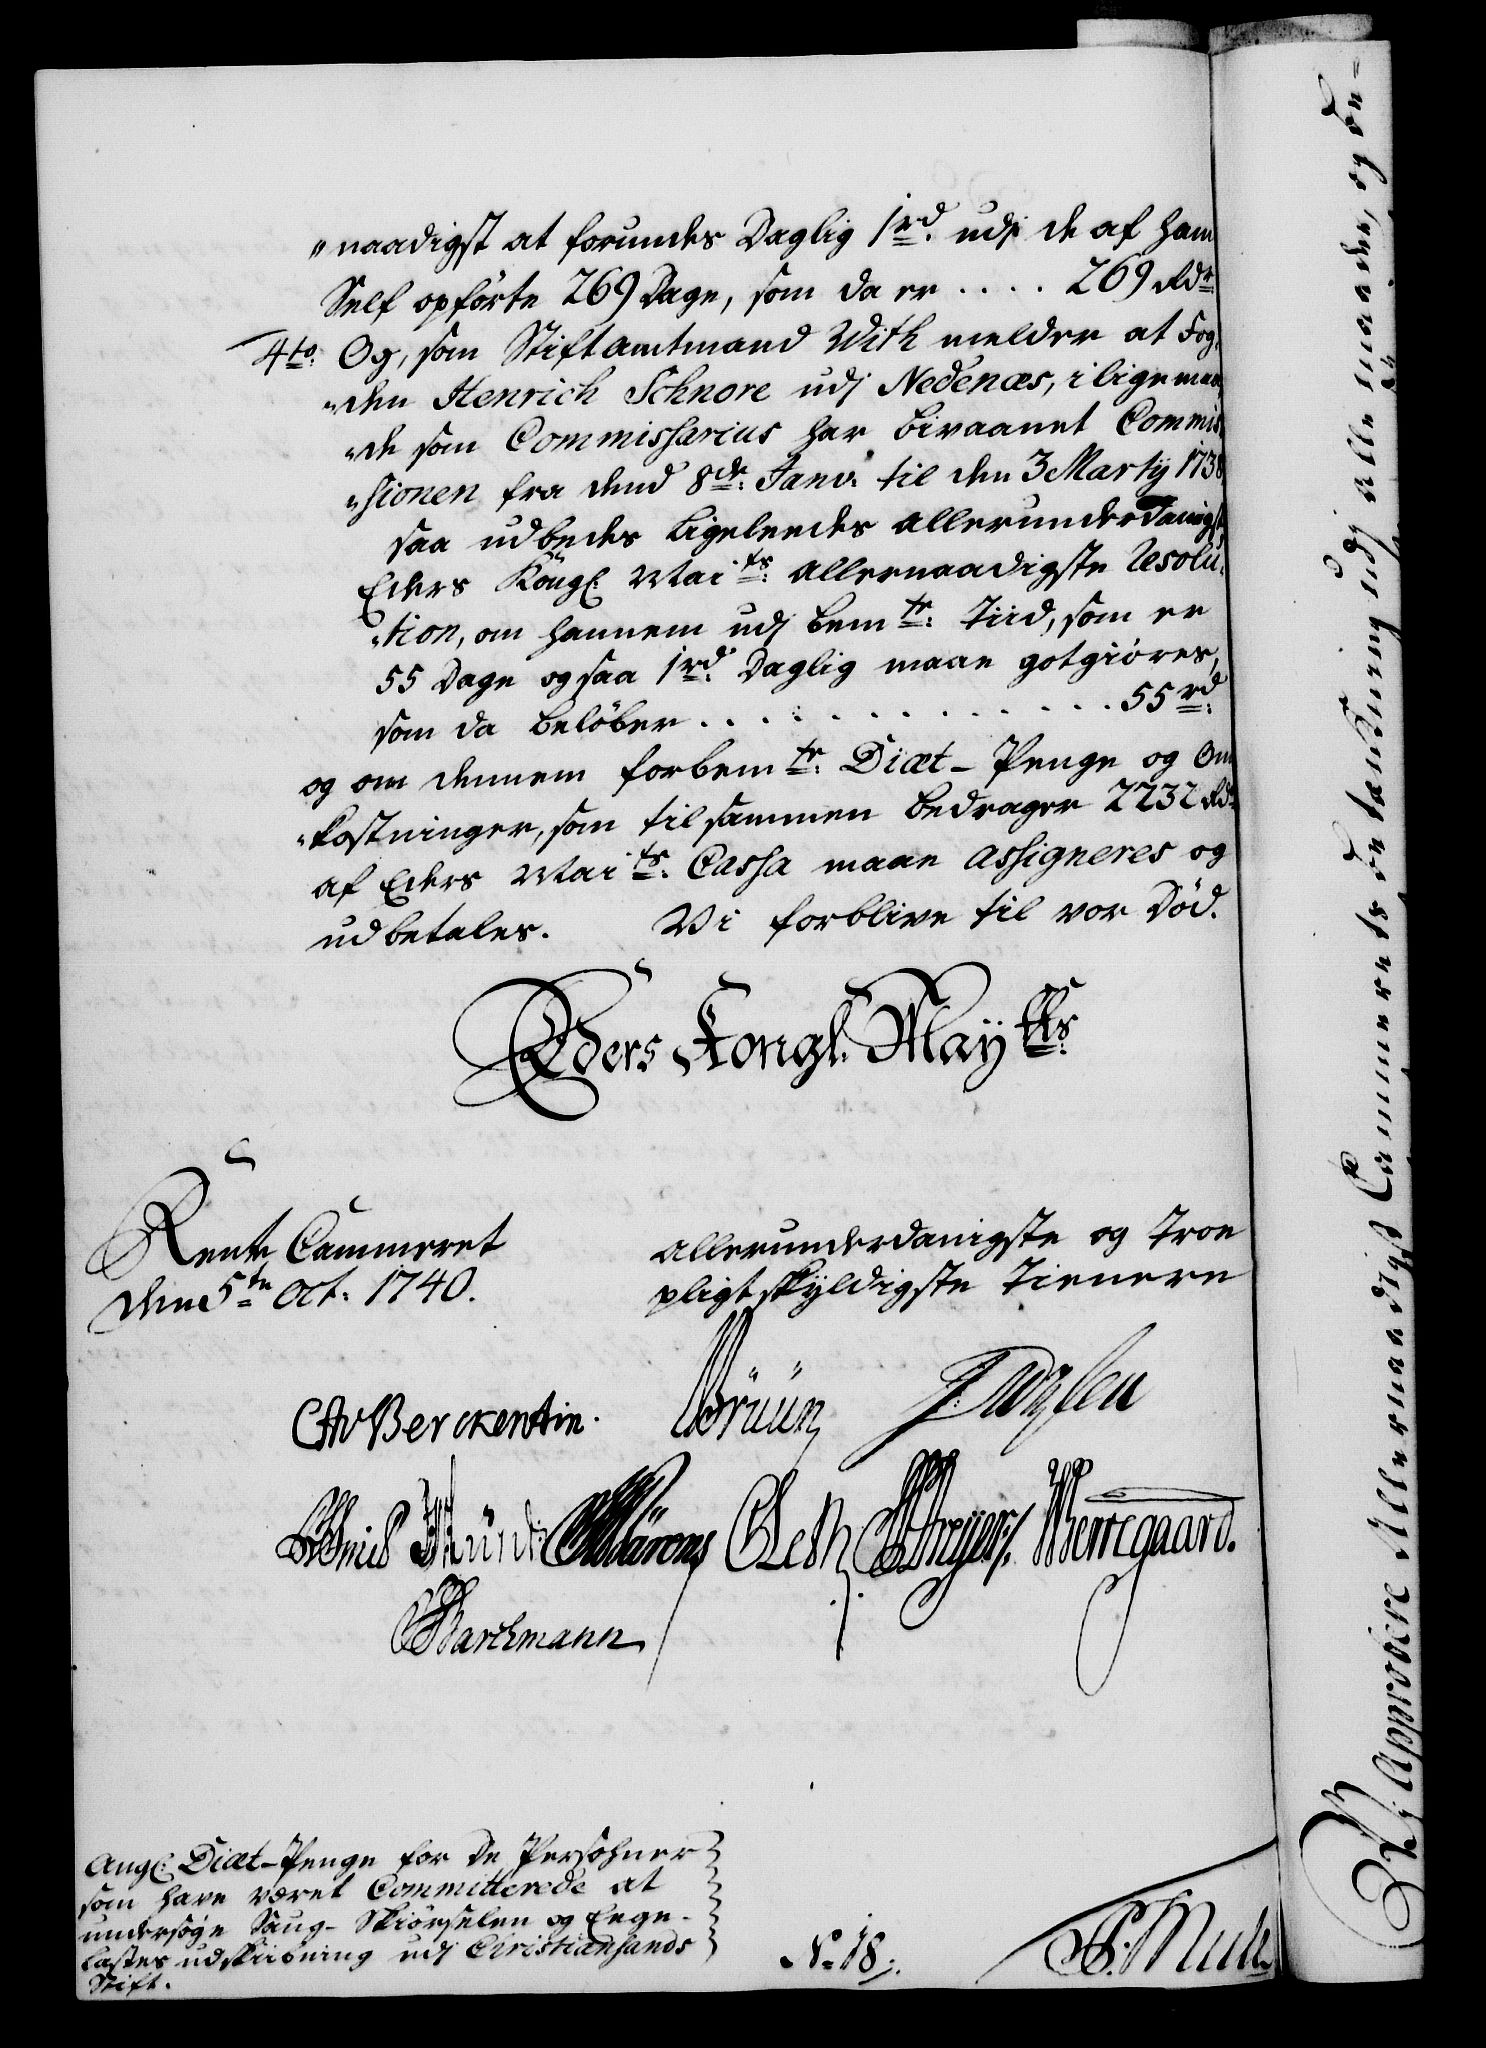 "naadigst at forundes Daglig 1 rd. udi de af ham
Self opførte 269 Dage, som da er .... 269 Rdr.
4to. Og, som Stiftamtmand With melder at Fog-
"den Henrich Schnore udj Nedenæs, i lige maa-
"de som Commissarius har bivaanet Commis-
"sionen fra dend 8de Janv: til den 3 Martij 1738
saa udbedes ligeleedes allerunderdanigst,
Eders Kongl. Maits. allernaadigste Resolu-
"tion, om hannem udj bemte. Tiid, som er
55 Dage og saa 1 rd. Daglig maae gotgiöres,
som da belöber . . . . . . . . . . . . . 55 rd.
og om dennem forbemte. Diæt-Penge og Om
"kostninger, som tilsammen bedrager 2232 Rdr.
af Eders Maits. Cassa maae assigneres og
udbetales. Vi forblive til vor Död.
Eders Kongl. Maytts.
Rente Cammeret
den 5te Oct. 1740.
allerunderdanigste og Troe
pligtskyldigste Tienere
CAvBerckentin.
Brüün
Wærregaard.
Barchmann
Angl. Diæt-Penge for de Persohner
som have været Committerede at
undersöge Saug-Skiörselen og Enge-
lastes udskibning udj Christiansands
Stift.
No. 18.
Vi Approbere Allernaadigst Cammerets betænkning udj alle maader, og be-